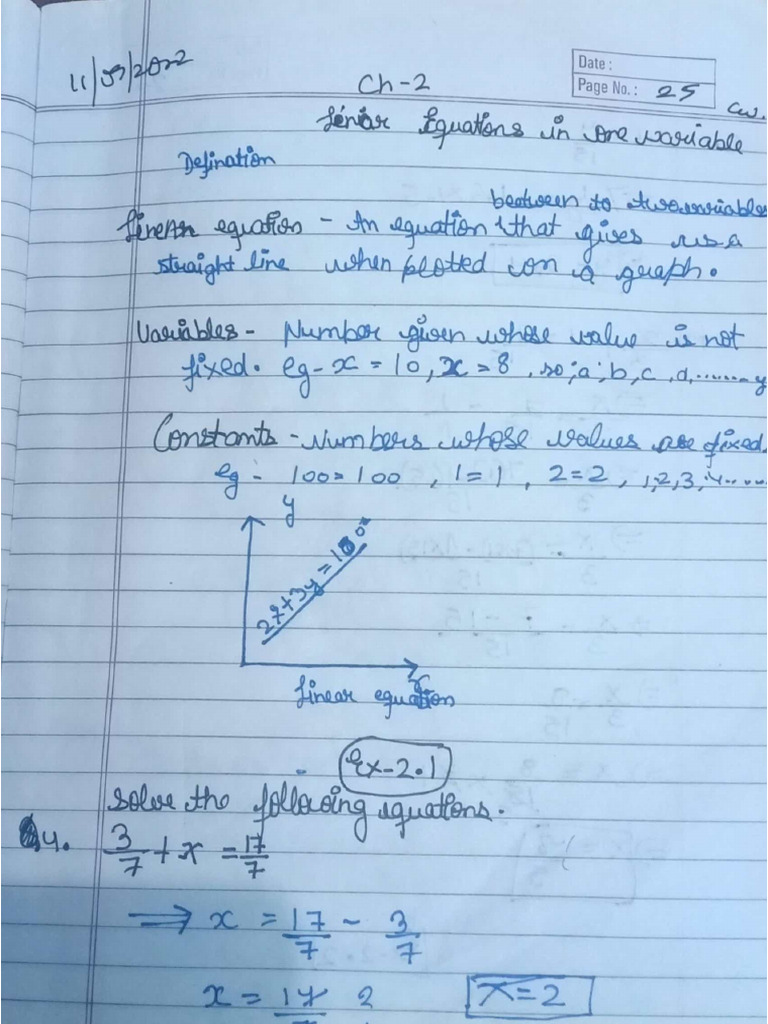 11/09/2022
Date :
Ch-2
Page No. : 25
Cw.
Linear Equations in one variable
Defination
between to two variables
Linear equation - An equation that gives us a
straight line when plotted on a graph.
Variables - Number given whose value is not
fixed. eg - x = 10, x = 8, so; a; b, c, d, ........ y
Constants - Numbers whose values are fixed.
eg - 100 = 100, 1 = 1, 2 = 2, 1,2,3,4.....
y
2x+3y = 100
x
Linear equation
Ex-2.1
Solve the following equations.
4. 3/7 + x = 17/7
⟹ x = 17/7 - 3/7
x = 14 2
x = 2